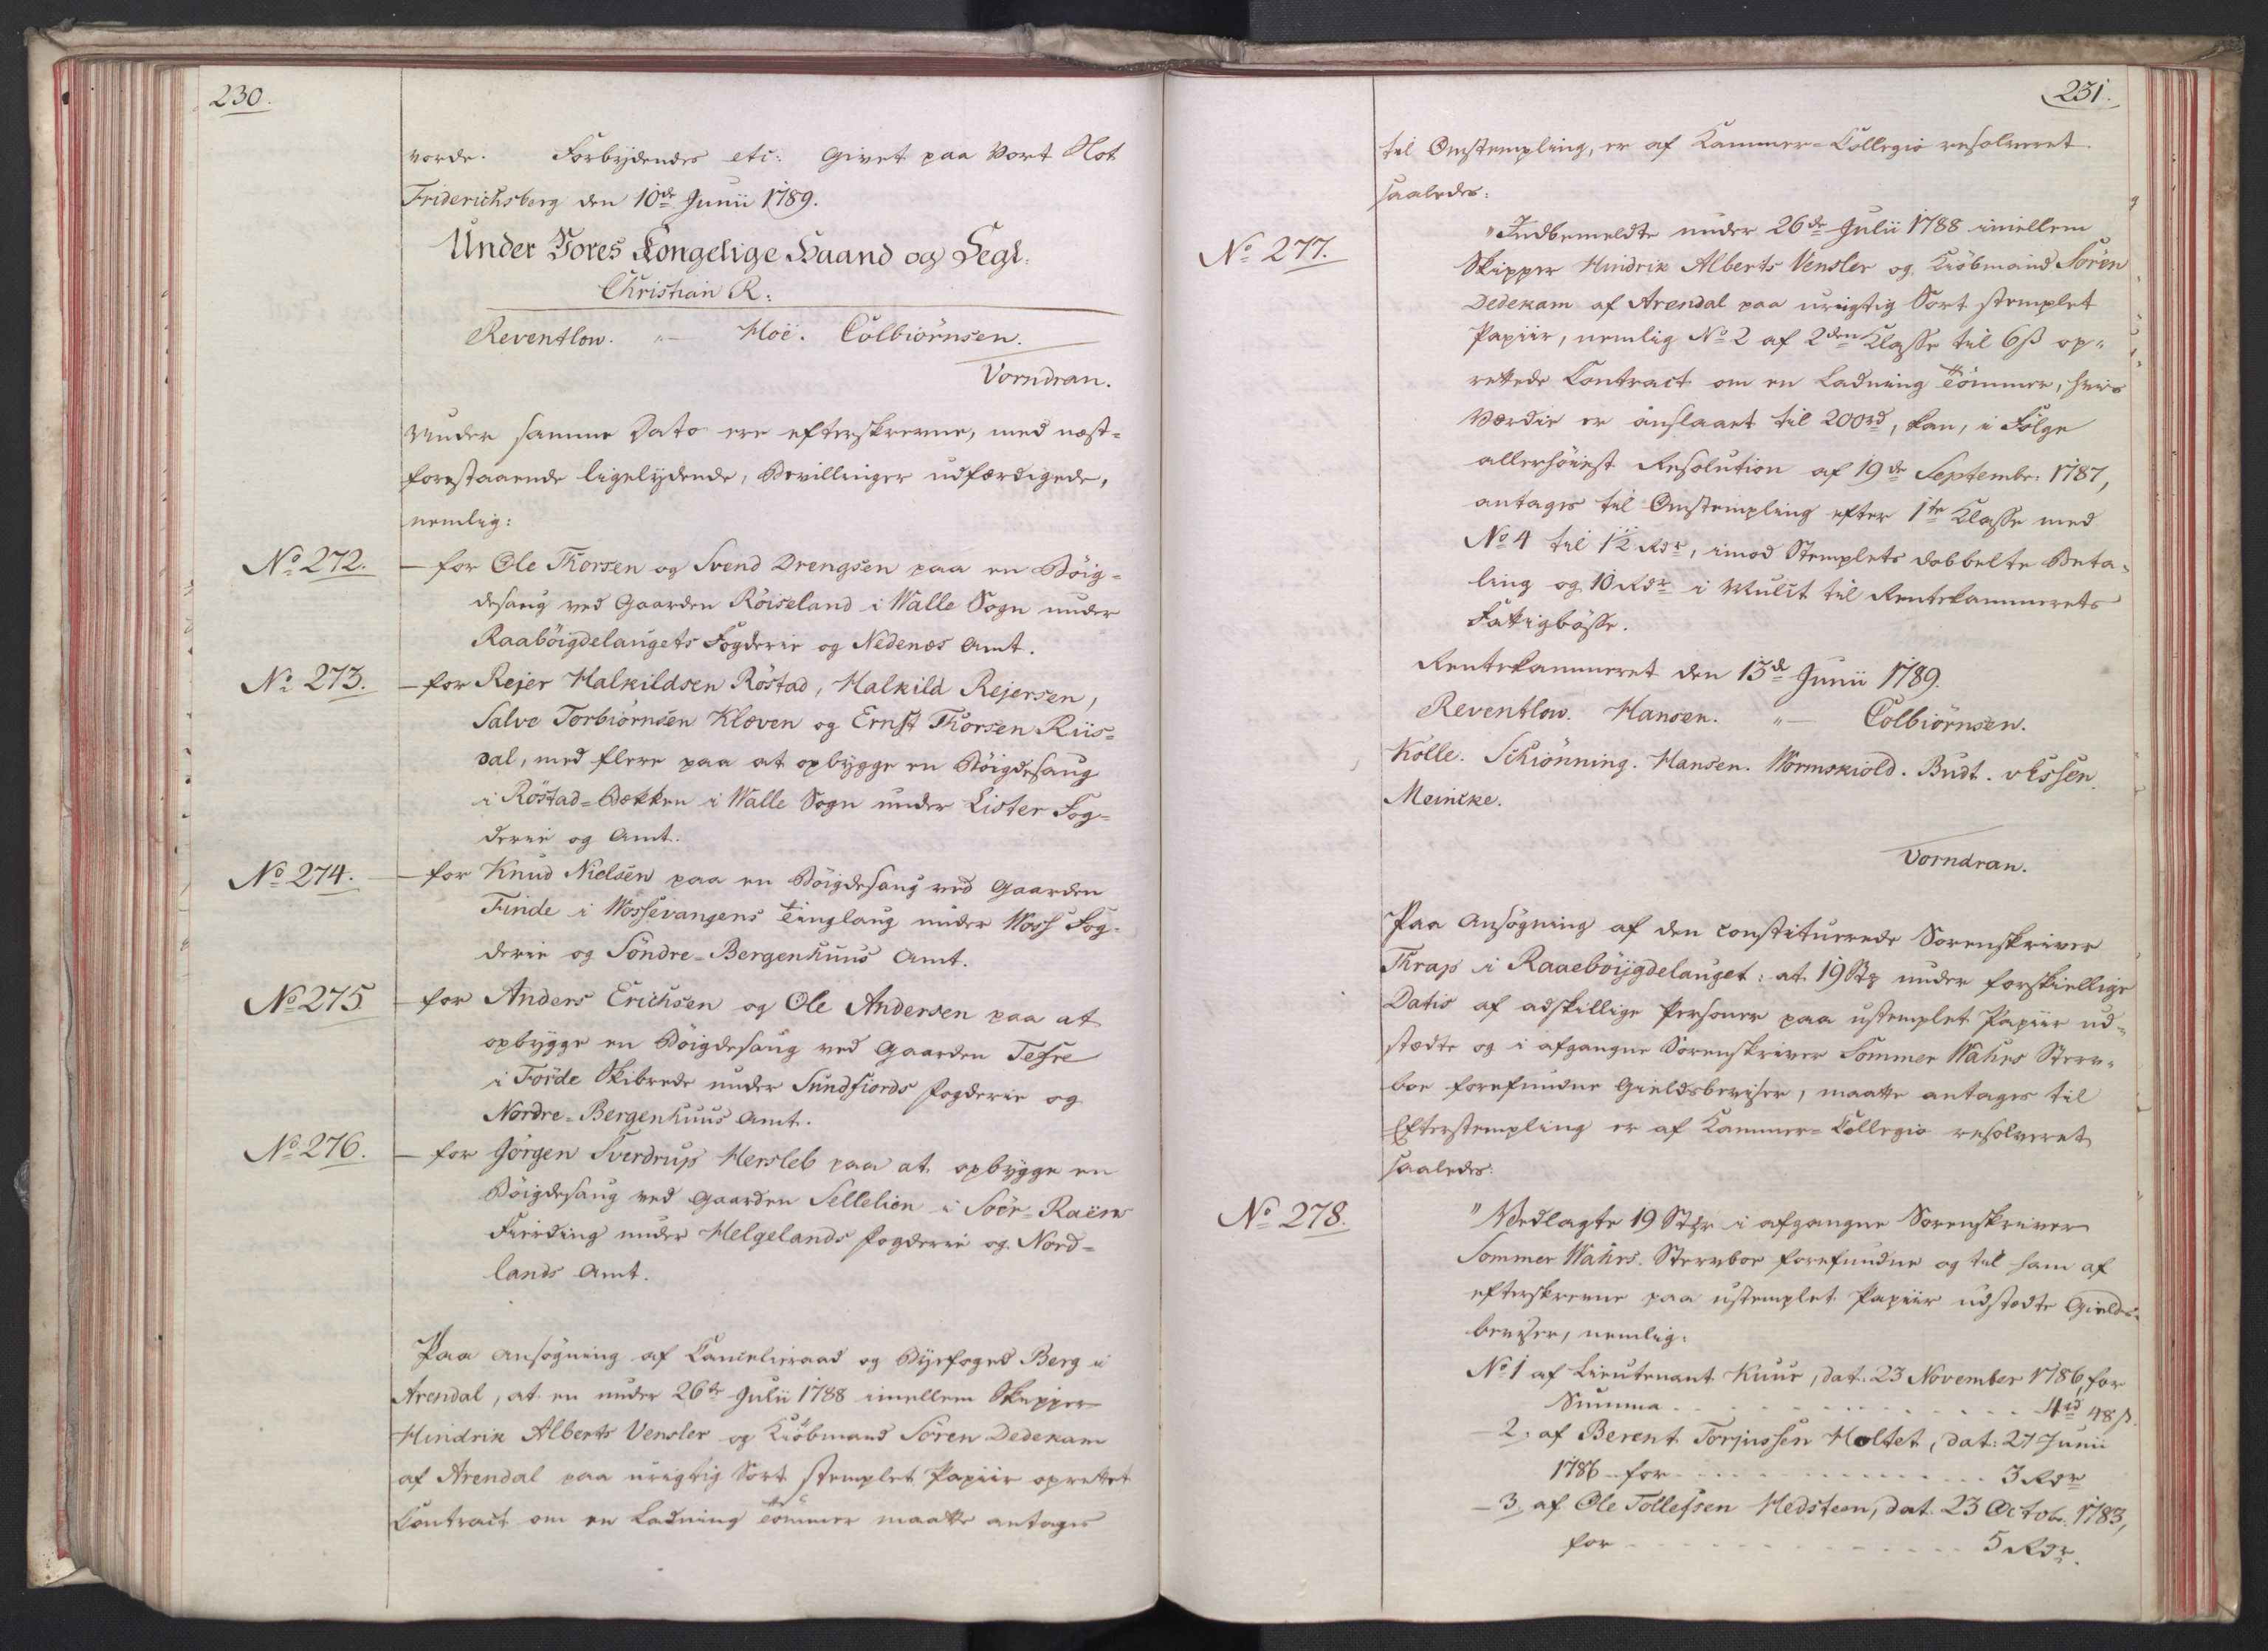 230.
vorde. Forbydendes etc: Givet paa Vort Slot
Friderichsberg den 10de Junii 1789.
Under Vores Kongelige Haand og Segl.
Christian R:
Reventlow. "— Hoë. Colbiörnsen.
Vorndran.
Under samme Dato ere efterskrevne, med næst-
forestaaende ligelydende, Bevillinger udfærdigede,
nemlig:
No 272. — for Ole Thorsen og Svend Drengsen paa en Böig-
desaug ved Gaarden Röiseland i Walle Sogn under
Raaböigdelaugets Fogderie og Nedenæs Amt.
No 273. — for Rejer Halkildsen Röstad, Halkild Rejersen,
Salve Torbiörnsen Klæven og Ernst Thorsen Riis-
dal, med flere paa at opbygge en Böigdesaug
i Röstad-Bækken i Walle Sogn under Lister Fog-
derie og Amt.
No 274. — for Knud Nielsen paa en Böigdesaug ved Gaarden
Finde i Wossevangens Tinglaug under Woss Fog-
derie og Söndre-Bergenhuus Amt.
No 275. — for Anders Erichsen og Ole Andersen paa at
opbygge en Böigdesaug ved Gaarden Tefre
i Förde Skibrede under Sundfiords Fogderie og
Nordre-Bergenhuus Amt.
No 276. — for Jörgen Sverdrup Hersleb paa at opbygge en
Böigdesaug ved Gaarden Sellelien i Soër-Raën
Fierding under Helgelands Fogderie og Nord-
lands Amt.
Paa Ansögning af Cancelieraad og Byefoged Berg i
Arendal, at en under 26de Julii 1788 imellem Skipper
Hindrik Alberts Vensler og Kiöbmand Sören Dedekam
af Arendal paa urigtig Sort stemplet Papiir oprettet
Contract om en Ladning Tömmer maatte antages
231.
til Omstempling, er af Kammer-Collegio resolveret
saaledes:
No 277. "Indbemeldte under 26de Julii 1788 imellem
Skipper Hindrik Alberts Vensler og Kiöbmand Sören
Dedekam af Arendal paa urigtig Sort stemplet
Papiir, nemlig No 2 af 2den Klasse til 6ß op-
rettede Contract om en Ladning Tömmer, hvis
Værdie er anslaaet til 200rd, kan, i Fölge
allerhöiest Resolution af 19de Septembr: 1787,
antages til Omstempling efter 1te Klasse med
No 4 til 1½ Rdr, imod Stemplets dobbelte Beta-
ling og 10 Rdr i Mulct til Rentekammerets
Fattigbösse.
Rentekammeret den 13de Junii 1789.
Reventlow. Hansen. "— Colbiörnsen.
Kolle. Schiönning. Hansen. Wormskiold. Budt. v Essen.
Meincke.
Vorndran.
Paa Ansögning af den constituerede Sorenskriver
Thrap i Raaebøygdelauget: at 19 Stk under forskiellige
Datis af adskillige Personer paa ustemplet Papiir ud-
stædte og i afgangne Sorenskriver Sommer Wahrs Sterv-
boe forefundne Gieldsbeviser, maatte antages til
Efterstempling er af Kammer-Collegio resolveret
saaledes:
No 278. "Vedlagte 19 Stkr i afgangne Sorenskriver
Sommer Wahrs Stervboe forefundne og til ham af
efterskrevne paa ustemplet Papiir udstædte Gields-
beviser, nemlig:
No 1 af Lieutenant Kuur, dat. 23 November 1786, for
Summa . . . 4rd 48ß.
— 2. af Berent Torjussen Holtet, dat: 27 Junii
1786 for . . . 3 Rdr
— 3. af Ole Tollefsen Hedsteen, dat. 23 Octobr. 1783,
for . . . 5 Rdr.